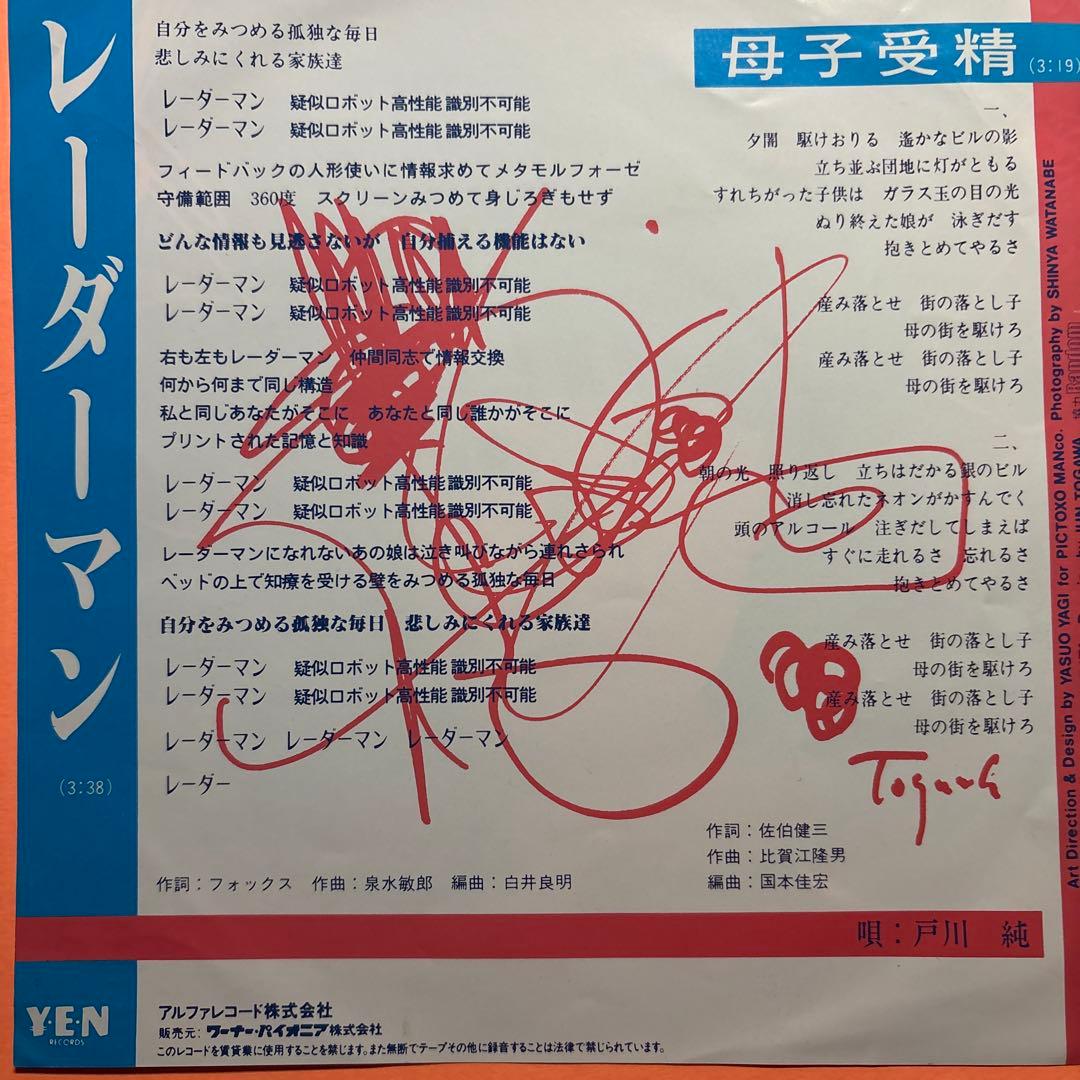 レーダーマン
(3:38)
自分をみつめる孤独な毎日
悲しみにくれる家族達
レーダーマン 疑似ロボット高性能識別不可能
レーダーマン 疑似ロボット高性能識別不可能
フィードバックの人形使いに情報求めてメタモルフォーゼ
守備範囲 360度 スクリーンみつめて身じろぎもせず
どんな情報も見逃さないが 自分捕える機能はない
レーダーマン 疑似ロボット高性能識別不可能
レーダーマン 疑似ロボット高性能識別不可能
右も左もレーダーマン 仲間同志で情報交換
何から何まで同じ構造
私と同じあなたがそこに あなたと同じ誰かがそこに
プリントされた記憶と知識
レーダーマン 疑似ロボット高性能識別不可能
レーダーマン 疑似ロボット高性能識別不可能
レーダーマンになれないあの娘は泣き叫びながら連れさられ
ベッドの上で知療を受ける壁をみつめる孤独な毎日
自分をみつめる孤独な毎日 悲しみにくれる家族達
レーダーマン 疑似ロボット高性能識別不可能
レーダーマン 疑似ロボット高性能識別不可能
レーダーマン レーダーマン レーダーマン
レーダー
作詞:フォックス 作曲:泉水敏郎 編曲:白井良明
母子受精 (3:19)
一、
夕闇 駆けおりる 遙かなビルの影
立ち並ぶ団地に灯がともる
すれちがった子供は ガラス玉の目の光
ぬり終えた娘が 泳ぎだす
抱きとめてやるさ
産み落とせ 街の落とし子
母の街を駆けろ
産み落とせ 街の落とし子
母の街を駆けろ
二、
朝の光 照り返し 立ちはだかる銀のビル
消し忘れたネオンがかすんでく
頭のアルコール 注ぎだしてしまえば
すぐに走れるさ 忘れるさ
抱きとめてやるさ
産み落とせ 街の落とし子
母の街を駆けろ
産み落とせ 街の落とし子
母の街を駆けろ
Togawa
作詞:佐伯健三
作曲:比賀江隆男
編曲:国本佳宏
唄:戸川 純
Art Direction & Design by YASUO YAGI for PICTOXO MANco. Photography by SHINYA WATANABE
by JUN TOGAWA 協力 Random
Y・E・N
RECORDS
アルファレコード株式会社
販売元:ワーナー・パイオニア株式会社
このレコードを賃貸業に使用することを禁じます。また無断でテープその他に録音することは法律で禁じられています。